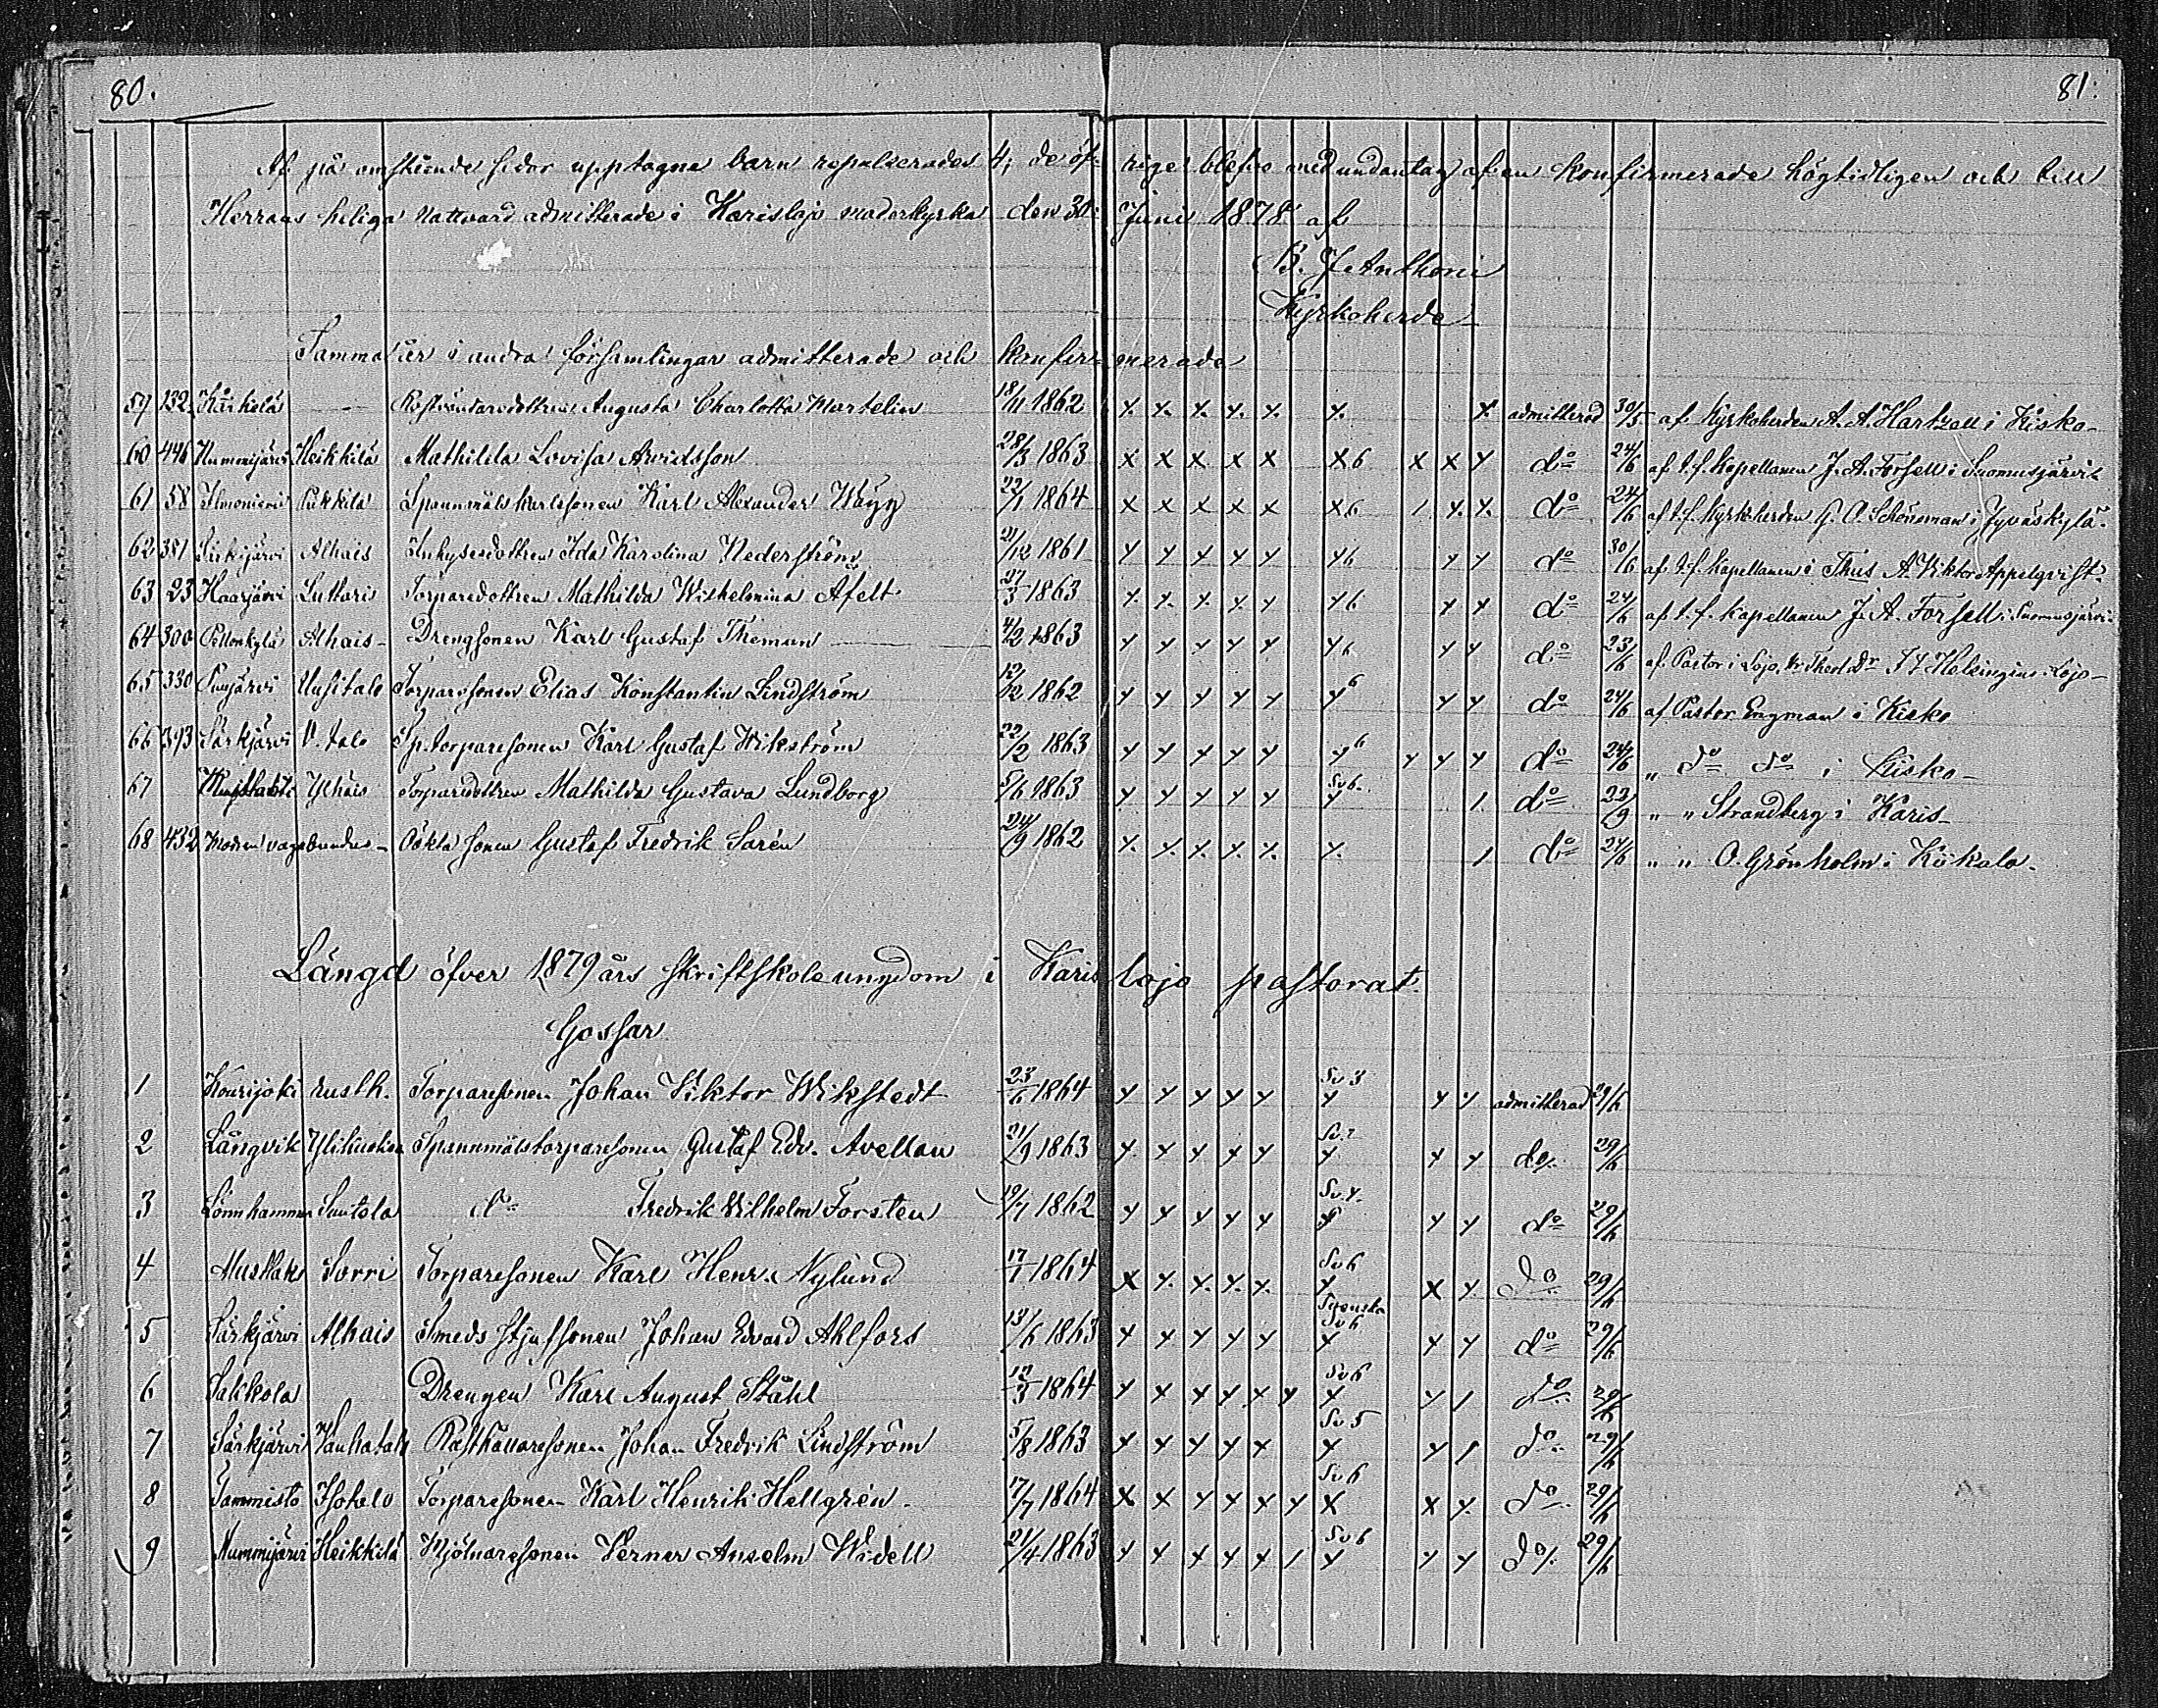 80.
81.
Af på omstående sidor upptagne barn repulserades 4; de öfrige blefvo med undantag af en konfirmerade högtidligen och till
Herrans heliga Nattvard admitterade i Karislojo moderkyrka den 30 Juni 1878 af
B. J. Anthoni
Kyrkoherde
Samma år i andra församlingar admitterade och konfirmerade
59 132 Kärkelä Augusta Charlotta Martelin 18/11 1862 x x x x x x x admitterad 30/5 af Kyrkoherden A. A. Hartzell i Kisko
60 446 Nummijärvi Heikkilä Mathilda Lovisa Arvidsson 28/3 1863 x x x x x x 6 x x x do 24/6 af t.f. Kapellanen J. A. Forsell i Suomusjärvi
61 58 Pukkila Karl Alexander Wägg 22/1 1864 x x x x x x 6 1 x x do 24/6 af t.f. Kyrkoherden G. O. Schöneman i Jyväskylä
62 381 Särkjärvi Alhais Inhysesdottren Ida Karolina Nederström 21/12 1861 x x x x x x 6 x x do 30/6 af t.f. Kapellanen i A. Viktor Appelqvist
63 23 Haarjärvi Luttari Torparedottren Mathilda Wilhelmina Afelt 27/3 1863 x x x x x x 6 x x do 24/6 af t.f. Kapellanen J. A. Forsell i Suomusjärvi
64 300 Pellonkylä Alhais Drengsonen Karl Gustaf Theman 4/2 1863 x x x x x x 6 x x do 23/6 af Pastor i Lojo, Theol Dr Helsingius Lojo
65 330 Uusitalo Torparesonen Elias Konstantin Lindström 12/12 1862 x x x x x x 6 x x do 24/6 af Pastor Engman i Kisko
66 393 Särkjärvi V. talo Sp. torparesonen Karl Gustaf Wikström 22/2 1863 x x x x x x 6 x x x do 24/6 " do do i Kisko
67 Ylhäis Torparedottren Mathilda Gustava Lundborg 5/6 1863 x x x x x Sv 6 x 1 do 22/9 " " Strandberg i Karis
68 432 Modren vagabundus Oäkta sonen Gustaf Fredrik Sarén 24/9 1862 x x x x x x 1 do 24/6 " " O. Grönholm i Kiikala
Längd öfver 1879 års skriftskoleungdom i Karislojo pastorat.
Gossar
1 Kourijoki rusth. Torparesonen Johan Viktor Wikstedt 23/6 1864 x x x x x Sv 3 x x x admitterad 29/6
2 Långvik Spannmålstorparesonen Gustaf Edv. Avellan 21/9 1863 x x x x x Sv. 2 x x x do 29/6
3 Lönnhammar Suutola do Fredrik Vilhelm Forsten 19/7 1862 x x x x x Sv. 4. x x x do 29/6
4 Sorri Torparesonen Karl Henr. Nylund 17/1 1864 x x x x x Sv 6 x x x do 29/6
5 Särkjärvi Alhais Smeds styfsonen Johan Edvard Ahlfors 13/6 1863 x x x x x Svenska Sv 6 x x x do 29/6
6 Sakkola Drengen Karl August Ståhl 12/3 1864 x x x x x x Sv 6 x x 1 do 29/6
7 Särkjärvi Vanhatalo Rusthållaresonen Johan Fredrik Lindström 5/8 1863 x x x x x Sv 5 x x 1 do 29/6
8 Tammisto Isotalo Torparesonen Karl Henrik Hellgrén 17/7 1864 x x x x x x Sv 6 x x x do 29/6
9 Nummijärvi Heikkilä Mjölnaresonen Verner Anselm Widell 21/4 1863 x x x x x 1 Sv 6 x x x do 29/6